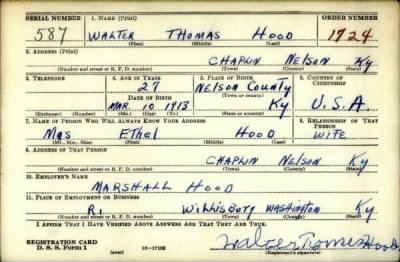 SERIAL NUMBER 1. NAME (Print) ORDER NUMBER
587 WALTER THOMAS HOOD 1724
(First) (Middle) (Last)
2. ADDRESS (Print)
CHAPLIN NELSON Ky
(Number and street or R. F. D. number) (Town) (County) (State)
3. TELEPHONE 4. AGE IN YEARS 5. PLACE OF BIRTH 6. COUNTRY OF CITIZENSHIP
27 NELSON COUNTY
DATE OF BIRTH (Town or county)
MAR. 10 1913 Ky U.S.A.
(Exchange) (Number) (Mo.) (Day) (Yr.) (State or country)
7. NAME OF PERSON WHO WILL ALWAYS KNOW YOUR ADDRESS 8. RELATIONSHIP OF THAT PERSON
MRS ETHEL HOOD WIFE
(Mr., Mrs., Miss) (First) (Middle) (Last)
9. ADDRESS OF THAT PERSON
CHAPLIN NELSON Ky
(Number and street or R. F. D. number) (Town) (County) (State)
10. EMPLOYER'S NAME
MARSHALL HOOD
11. PLACE OF EMPLOYMENT OR BUSINESS
R1 WILLISBURG WASHINGTON Ky
(Number and street or R. F. D. number) (Town) (County) (State)
I AFFIRM THAT I HAVE VERIFIED ABOVE ANSWERS AND THAT THEY ARE TRUE.
REGISTRATION CARD
D. S. S. Form 1 (over) Walter Thomas Hood
(Registrant's signature)